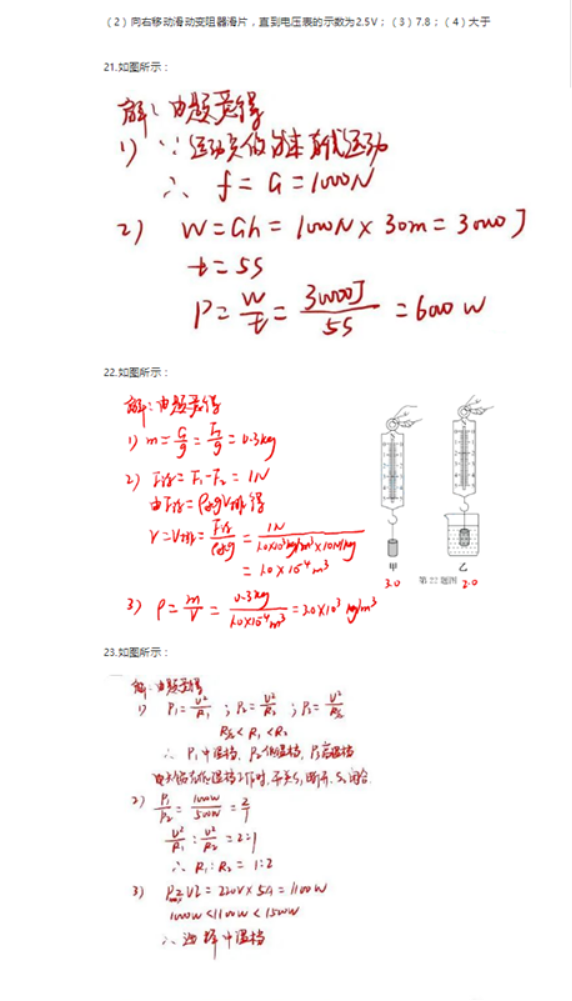 （2）向右移动滑动变阻器滑片，直到电压表的示数为2.5V；（3）7.8；（4）大于
21.如图所示：
解：由题意得
1) ∵运动员做匀速直线运动
∴ f = G = 1000N
2) W = Gh = 1000N × 30m = 30000J
t = 5s
P = W/t = 30000J/5s = 6000W
22.如图所示：
解：由题意得
1) m = G/g = F₁/g = 0.3kg
2) F浮 = F₁-F₂ = 1N
由F浮 = ρ水gV排 得
V = V排 = F浮/ρ水g = 1N/1.0×10³kg/m³×10N/kg
= 1.0 × 10⁻⁴m³
3) ρ = m/V = 0.3kg/1.0×10⁻⁴m³ = 3.0×10³ kg/m³
甲
乙
3.0
第22题图
2.0
23.如图所示：
解：由题意得
1) P₁ = U²/R₁ ; P₂ = U²/R₂ ; P₃ = U²/R并
R并 < R₁ < R₂
∴ P₁中温档, P₂低温档, P₃高温档
低温档工作时, 开关S₁断开, S₂闭合.
2) P₁/P₂ = 1000W/500W = 2/1
U²/R₁ : U²/R₂ = 2:1
∴ R₁:R₂ = 1:2
3) P = UI = 220V × 5A = 1100W
1000W < 1100W < 1500W
∴ 选择中温档